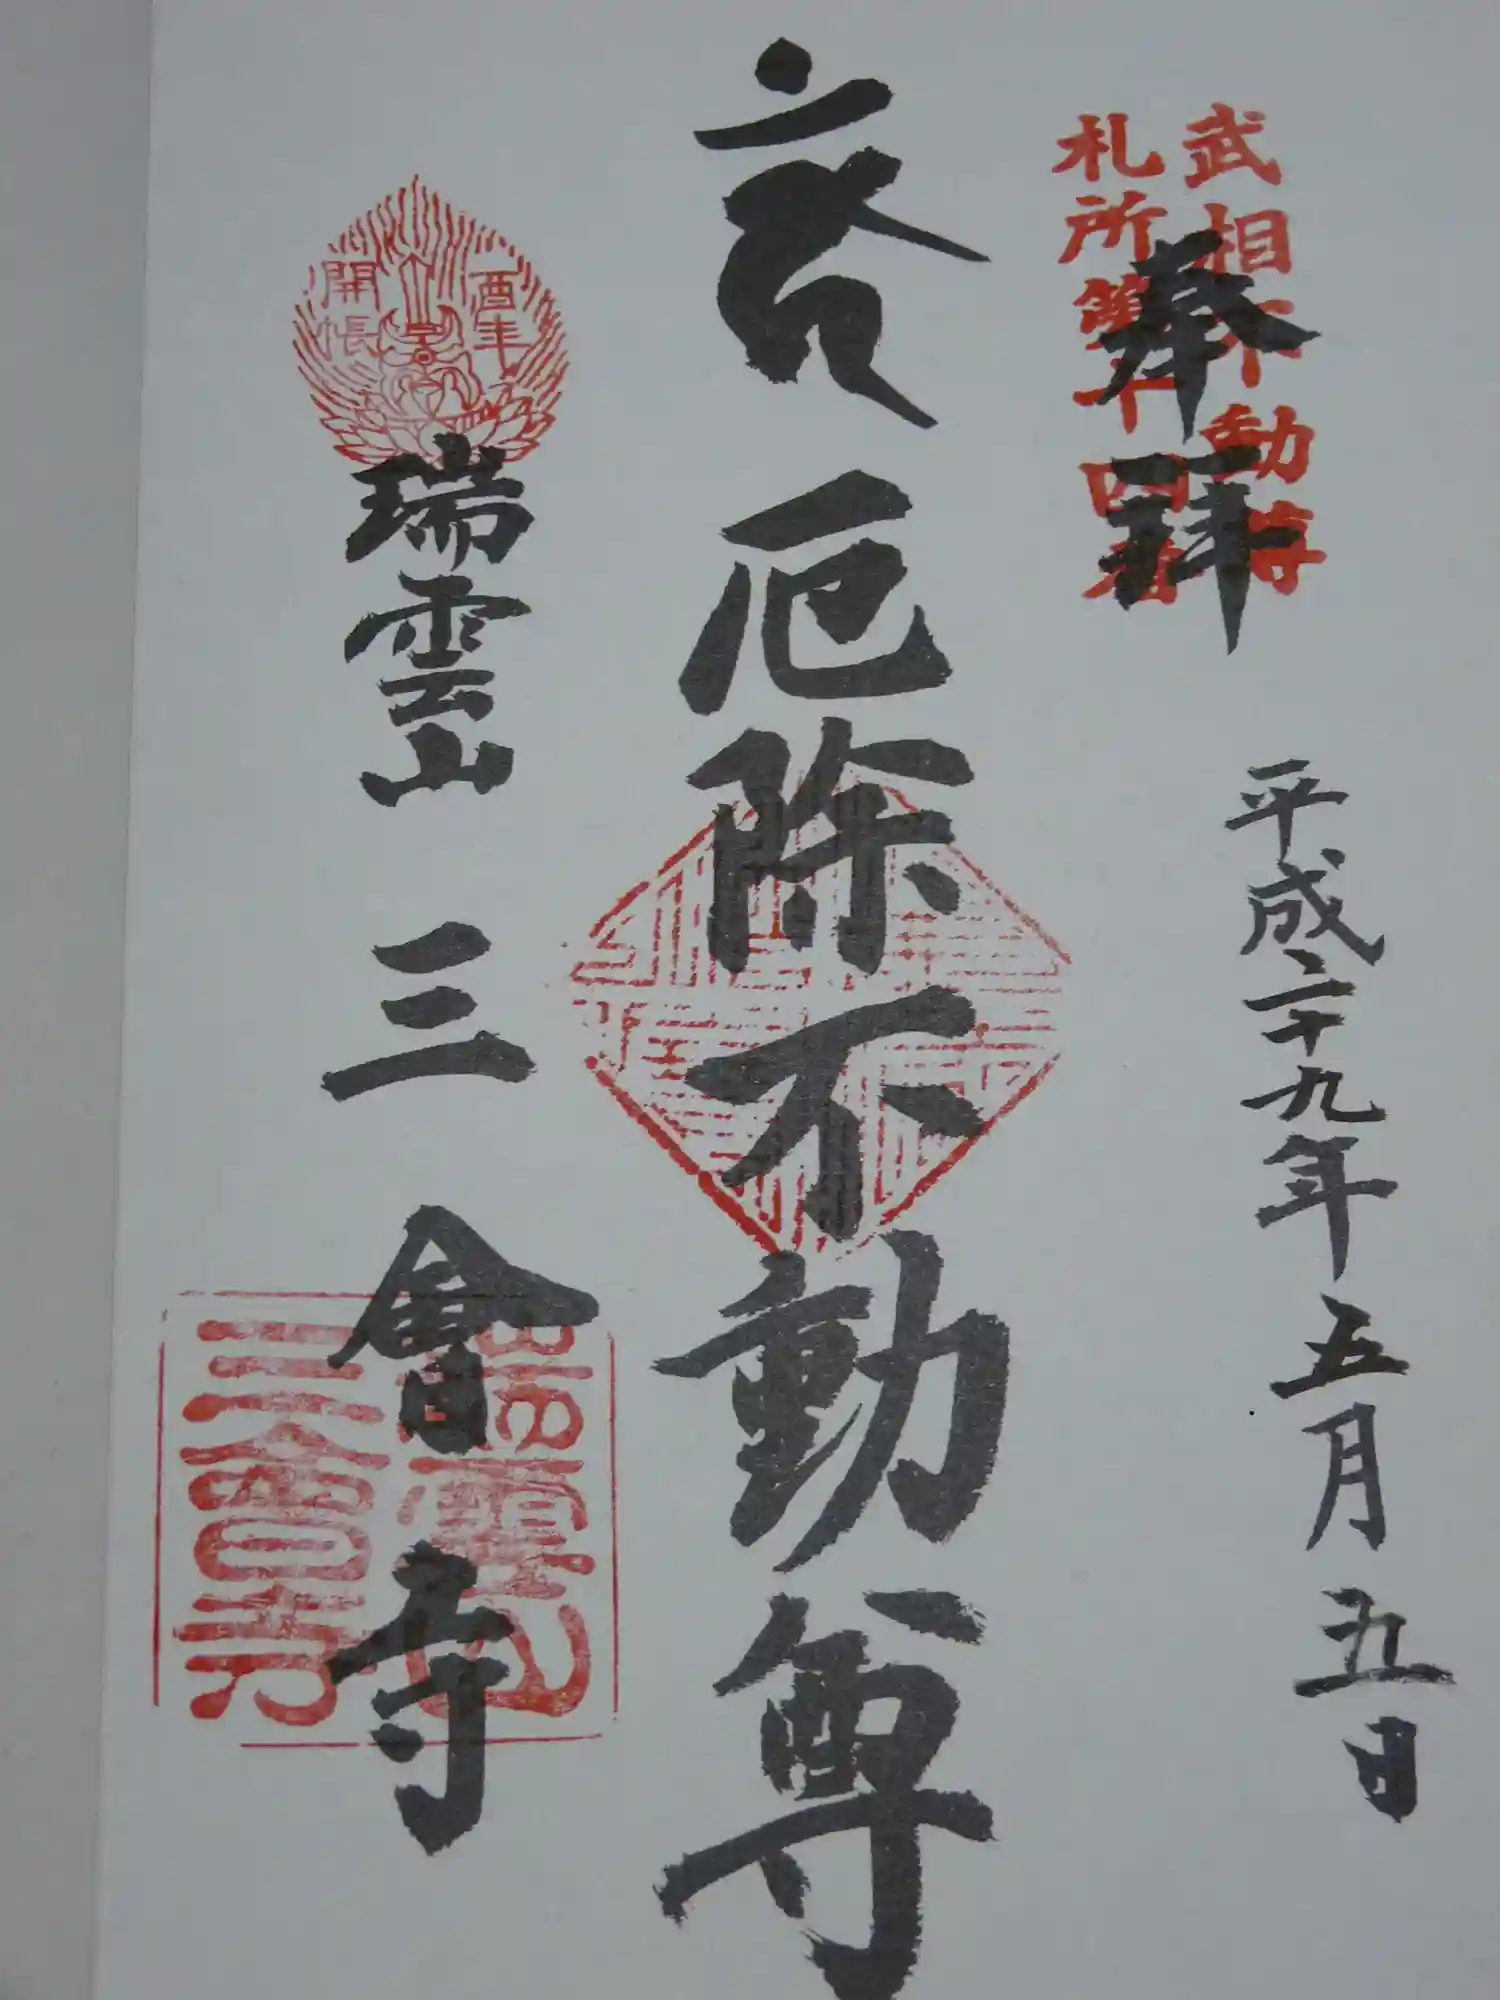 武相不動尊
札所第十四番
奉拝
平成二十九年五月五日
厄除不動尊
酉年
開帳
瑞雲山 三會寺
瑞雲山
三會寺